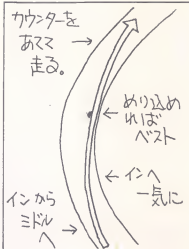 カウンターを
あてて
走る。
めり込め
ればベスト
インへ
一気に
インから
ミドル
へ